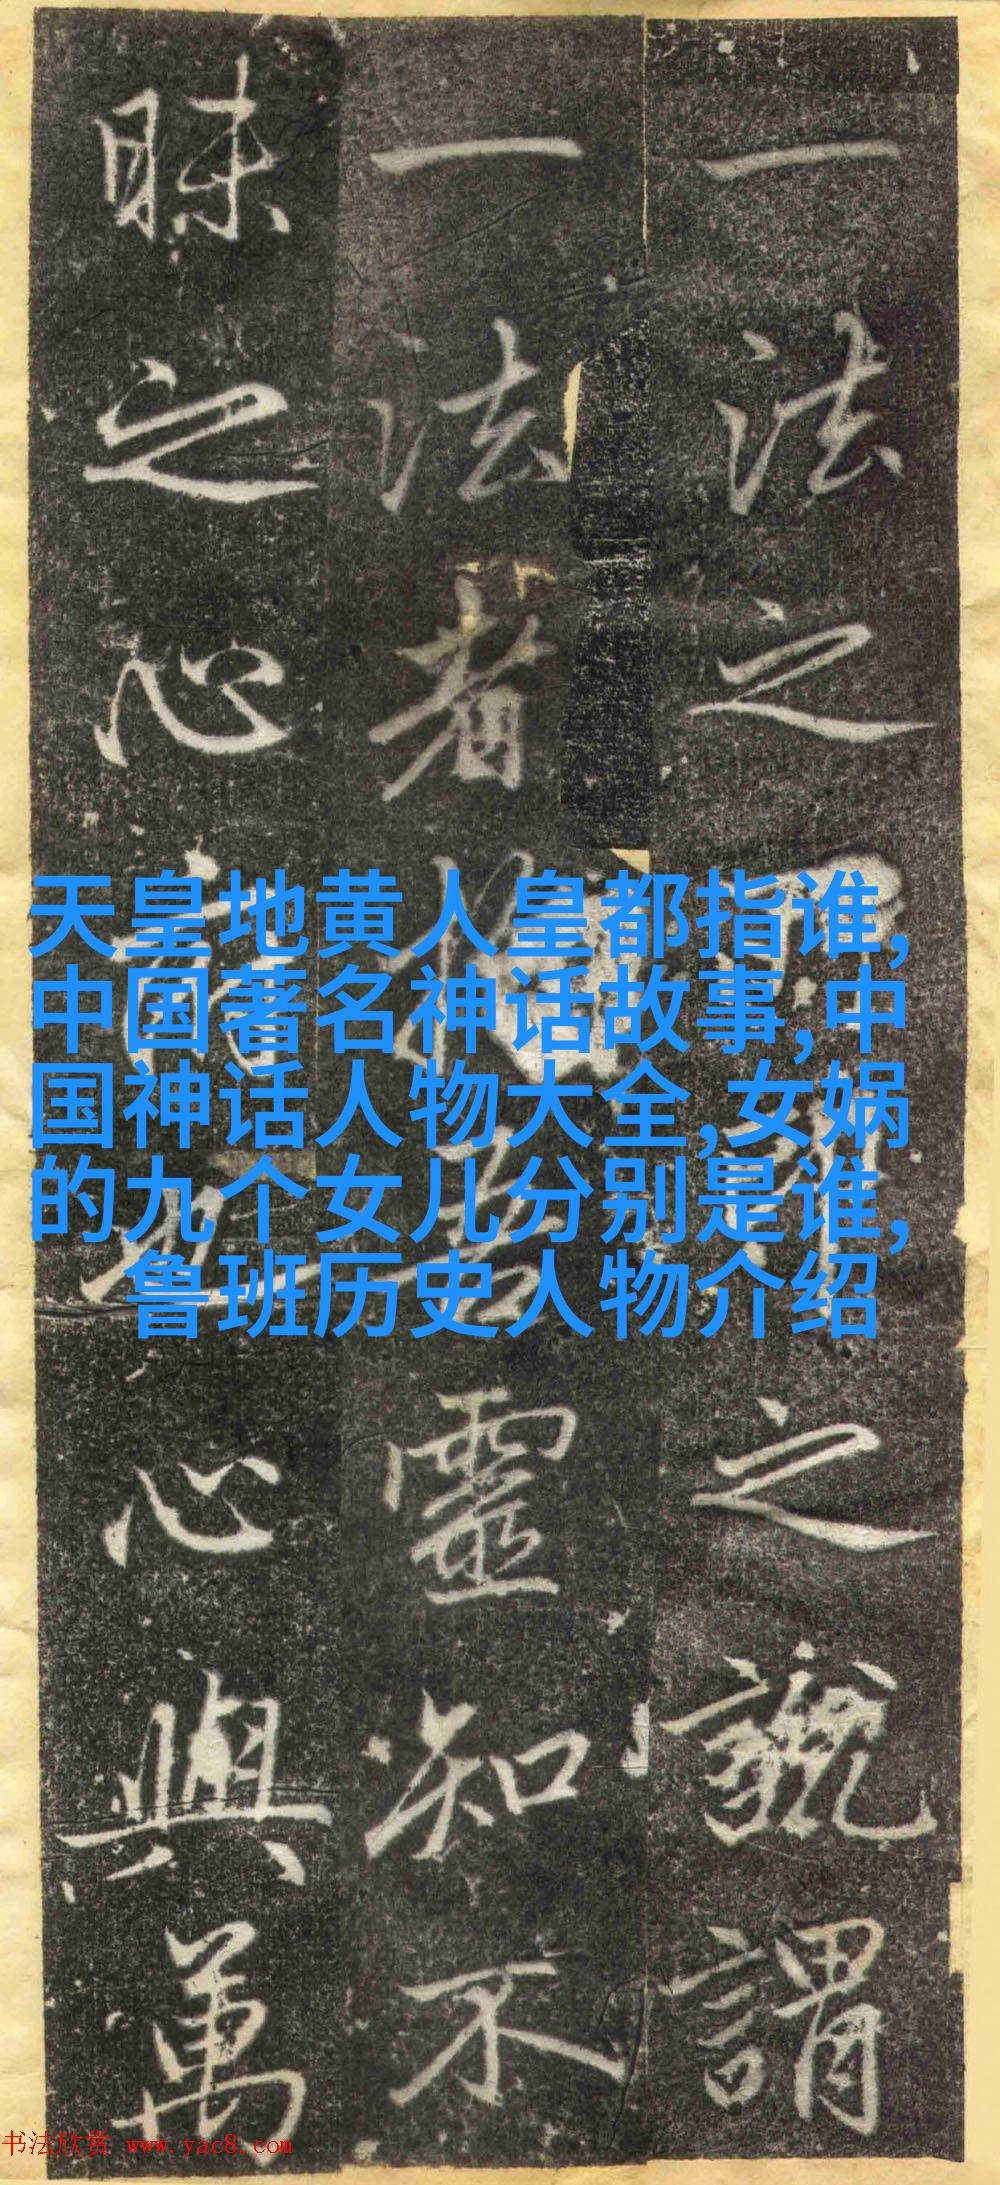 一法之之說謂
一法者吾靈知不
昧之心心與萬
天皇地黄人皇都指谁,
中国著名神话故事,中
国神话人物大全,女娲
的九个女儿分别是谁,
鲁班历史人物介绍
书法欣赏 www.yac8.com